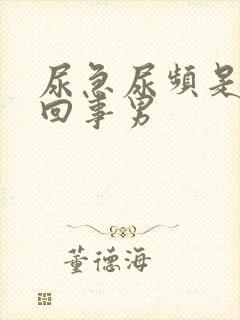 尿急尿频是
回事男
董德海